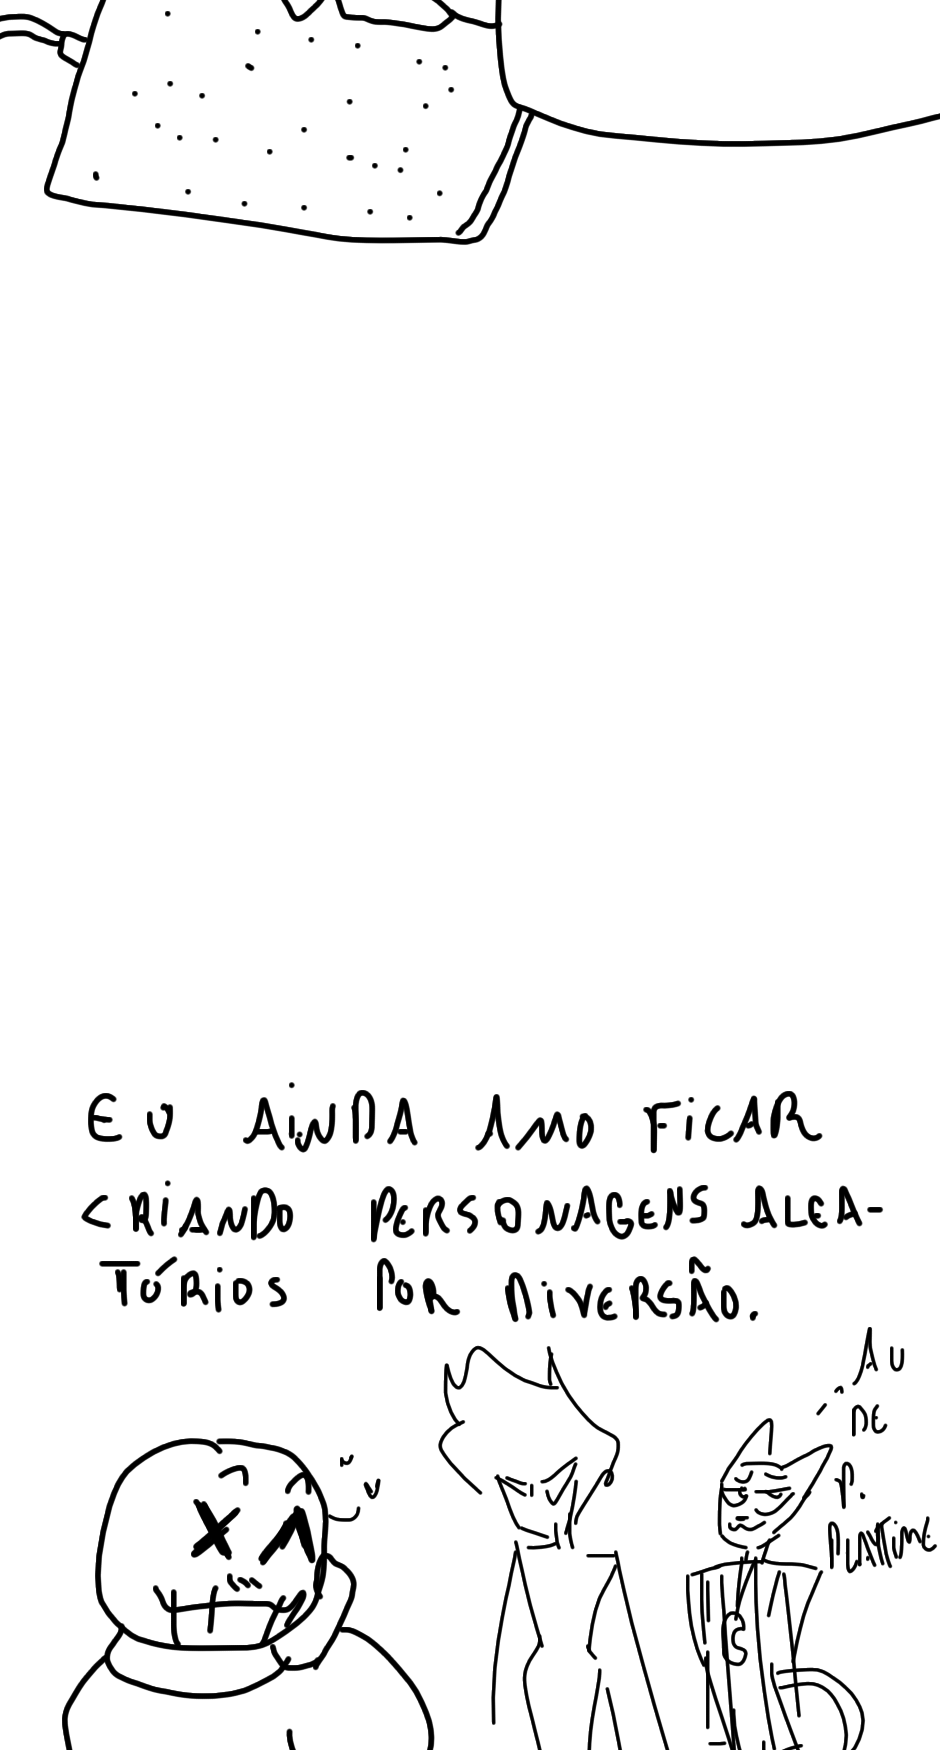 EU AINDA AMO FICAR
CRIANDO PERSONAGENS ALEA-
TÓRIOS POR DIVERSÃO.
AU
DE
P.
PLAYTIME